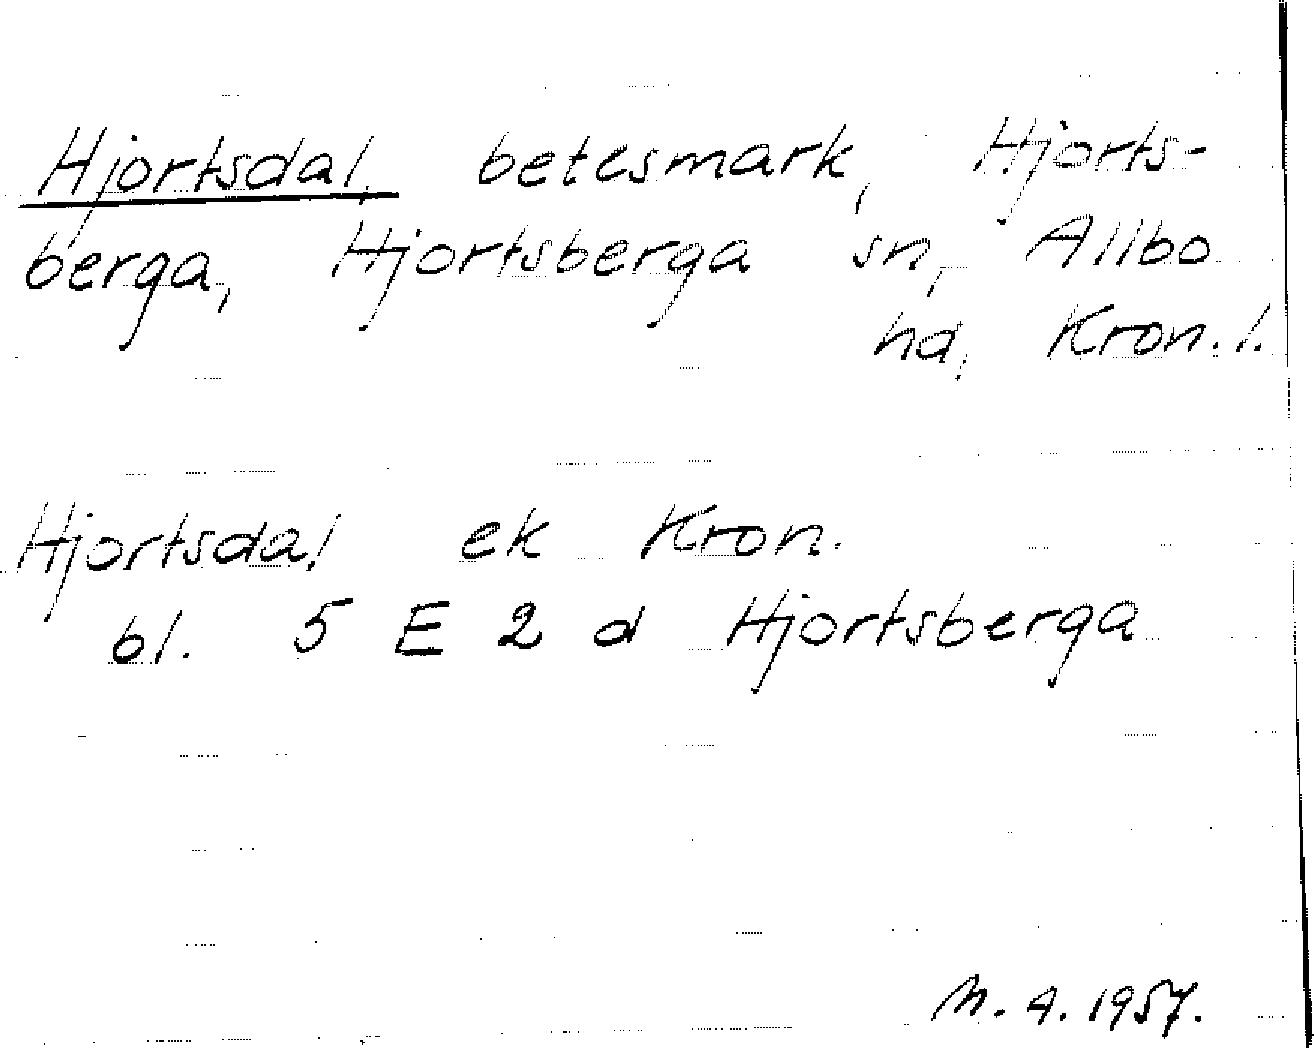 Hjortsdal, betesmark, Hjorts-
berga, Hjortsberga sn, Allbo
hd, Kron. l.
Hjortsdal ek Kron.
bl. 5 E 2 d Hjortsberga
M. A. 1957.